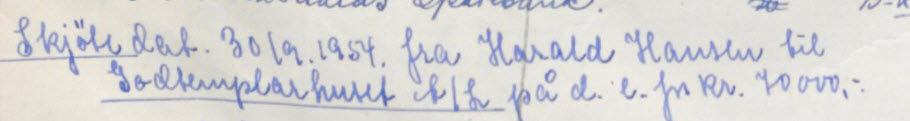 Skjöte dat. 30/9. 1954. fra Harald Hansen til
Godtemplarhuset A/L på d. e. for kr. 70 000,-